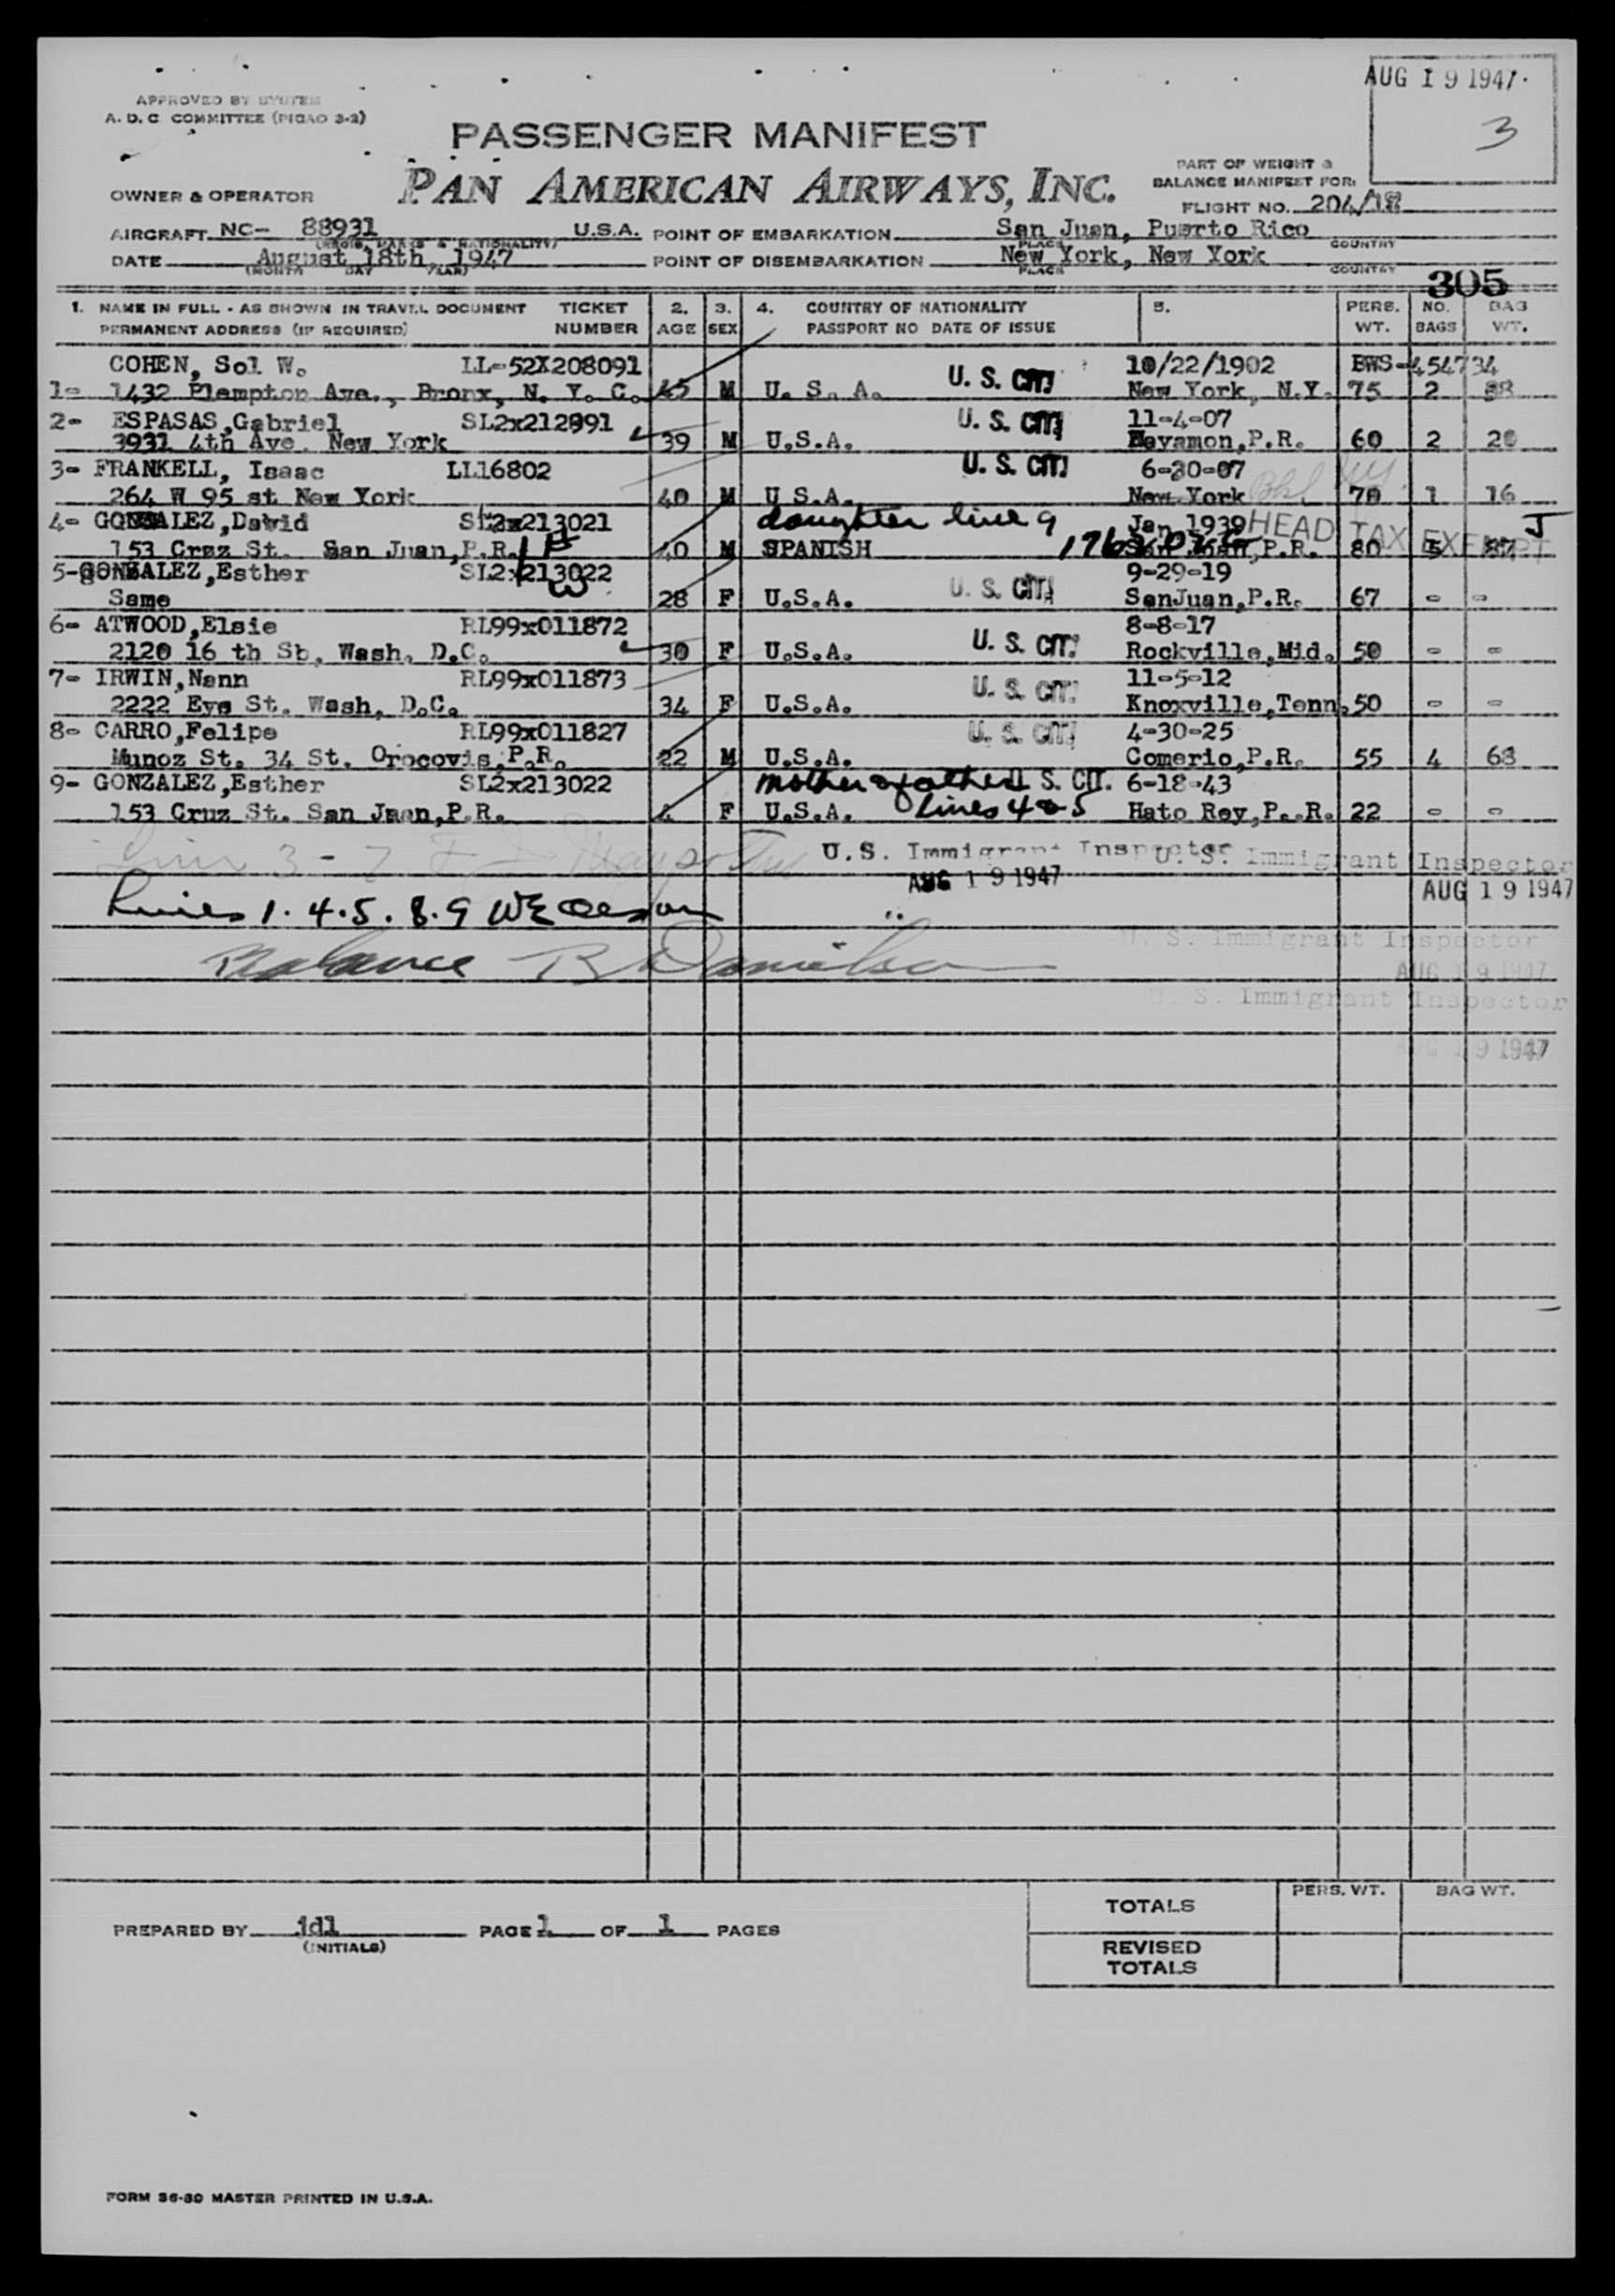 AUG 19 1947
3
APPROVED BY SYSTEM
A. D. C. COMMITTEE (PICAO 3-2)
PASSENGER MANIFEST
PART OF WEIGHT &
BALANCE MANIFEST FOR:
OWNER & OPERATOR PAN AMERICAN AIRWAYS, INC.
FLIGHT NO. 204/18
AIRCRAFT NC- 88931 U.S.A. POINT OF EMBARKATION San Juan, Puerto Rico
(REGIS. MARKS & NATIONALITY) PLACE COUNTRY
DATE August 18th 1947 POINT OF DISEMBARKATION New York, New York
(MONTH DAY YEAR) PLACE COUNTRY
305
1. NAME IN FULL - AS SHOWN IN TRAVEL DOCUMENT TICKET 2. 3. 4. COUNTRY OF NATIONALITY 5. PERS. NO. BAG
PERMANENT ADDRESS (IF REQUIRED) NUMBER AGE SEX PASSPORT NO DATE OF ISSUE WT. BAGS WT.
COHEN, Sol W. LL-52X208091 10/22/1902 BWS-454734
1- 1432 Plempton Ave., Bronx, N. Y. C. 45 M U. S. A. U. S. CIT. New York, N.Y. 75 2
2- ESPASAS,Gabriel SL2x212991 U. S. CIT. 11-4-07
3931 4th Ave. New York 39 M U.S.A. P.R. 60 2 20
3- FRANKELL, Isaac LL16802 U. S. CIT. 6-30-07
264 W 95 st New York 40 M U S.A. New York 70 1 16
4- GONZALEZ,David SL2x213021 daughter line 9 Jan 1939 HEAD TAX EXEMPT J
153 Cruz St. San Juan,P.R. 40 M SPANISH San Juan,P.R. 80 5 87
5-GONZALEZ,Esther SL2x213022 9-29-19
Same 28 F U.S.A. U. S. CIT. SanJuan,P.R. 67 - -
6- ATWOOD,Elsie RL99x011872 8-8-17
2120 16 th St, Wash. D.C. 30 F U.S.A. U. S. CIT. Rockville,Mid. 50 - -
7- IRWIN,Nann RL99x011873 11-5-12
2222 Eye St. Wash, D.C. 34 F U.S.A. U. S. CIT. Knoxville,Tenn. 50 - -
8- CARRO,Felipe RL99x011827 U. S. CIT. 4-30-25
Munoz St. 34 St. Orocovis,P.R. 22 M U.S.A. Comerio,P.R. 55 4 68
9- GONZALEZ,Esther SL2x213022 mother & father U. S. CIT. 6-18-43
153 Cruz St. San Jaan,P.R. 4 F U.S.A. lines 4 & 5 Hato Rey,P..R. 22 - -
U.S. Immigrant Inspector U. S. Immigrant Inspector
AUG 19 1947 AUG 19 1947
Lines 1. 4. 5. 8. 9
U. S. Immigrant Inspector
Balance B Danielson
AUG 19 1947
U. S. Immigrant Inspector
AUG 19 1947
TOTALS PERS. WT. BAG WT.
PREPARED BY jdl PAGE 1 OF 1 PAGES
(INITIALS)
REVISED
TOTALS
FORM 36-80 MASTER PRINTED IN U.S.A.